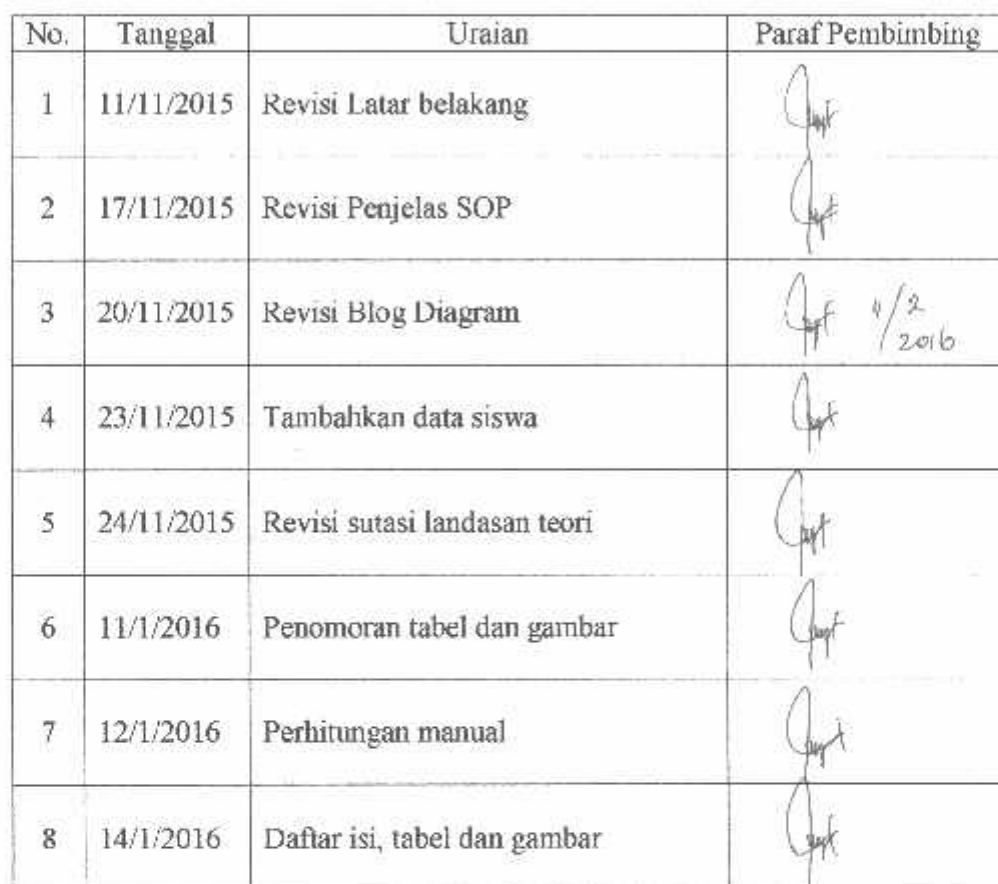 No. Tanggal Uraian Paraf Pembimbing
1 11/11/2015 Revisi Latar belakang
2 17/11/2015 Revisi Penjelas SOP
3 20/11/2015 Revisi Blog Diagram
2
2016
4 23/11/2015 Tambahkan data siswa
5 24/11/2015 Revisi sutasi landasan teori
6 11/1/2016 Penomoran tabel dan gambar
7 12/1/2016 Perhitungan manual
8 14/1/2016 Daftar isi, tabel dan gambar